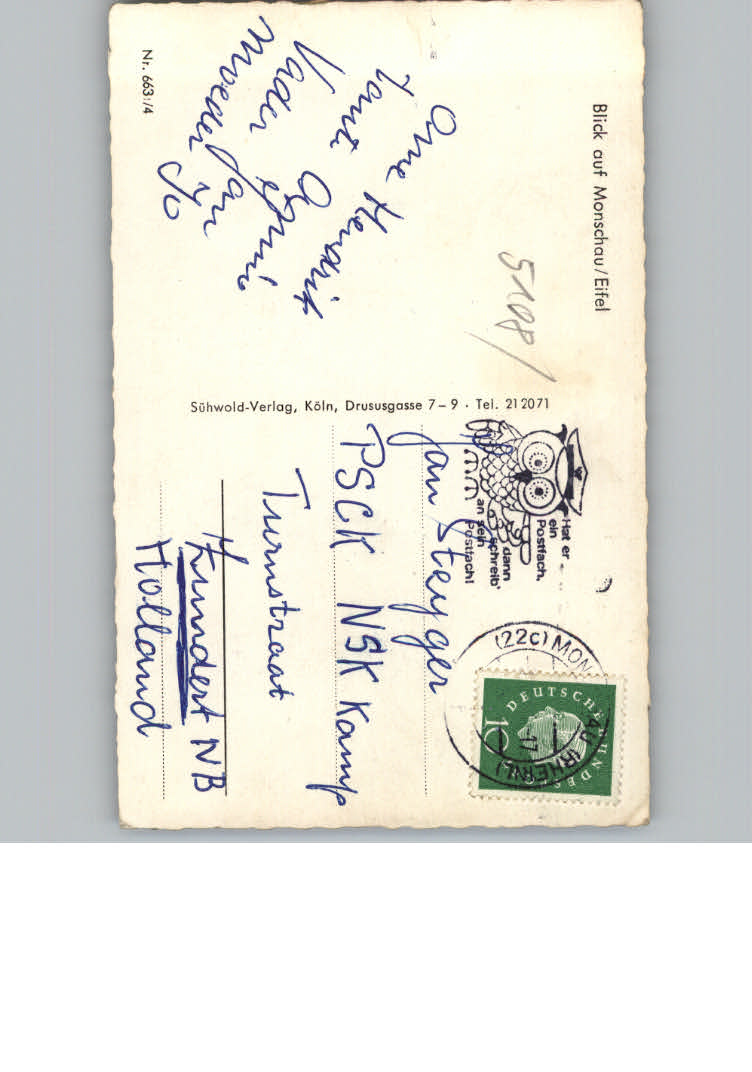 Blick auf Monschau/Eifel
5108/
Ome Hendrik
Tante
Vader
Moeder Jan
Jo
Nr. 663:/4
Sühwold-Verlag, Köln, Drususgasse 7–9 · Tel. 212071
Hat er
ein
Postfach,
dann
schreib'
an sein
Postfach!
(22c) MON AU (RHEINL)
17
DEUTSCHE BUNDES
10
Jan Steyger
PSCK NSK Kamp
Turnstraat
Zundert NB
Holland